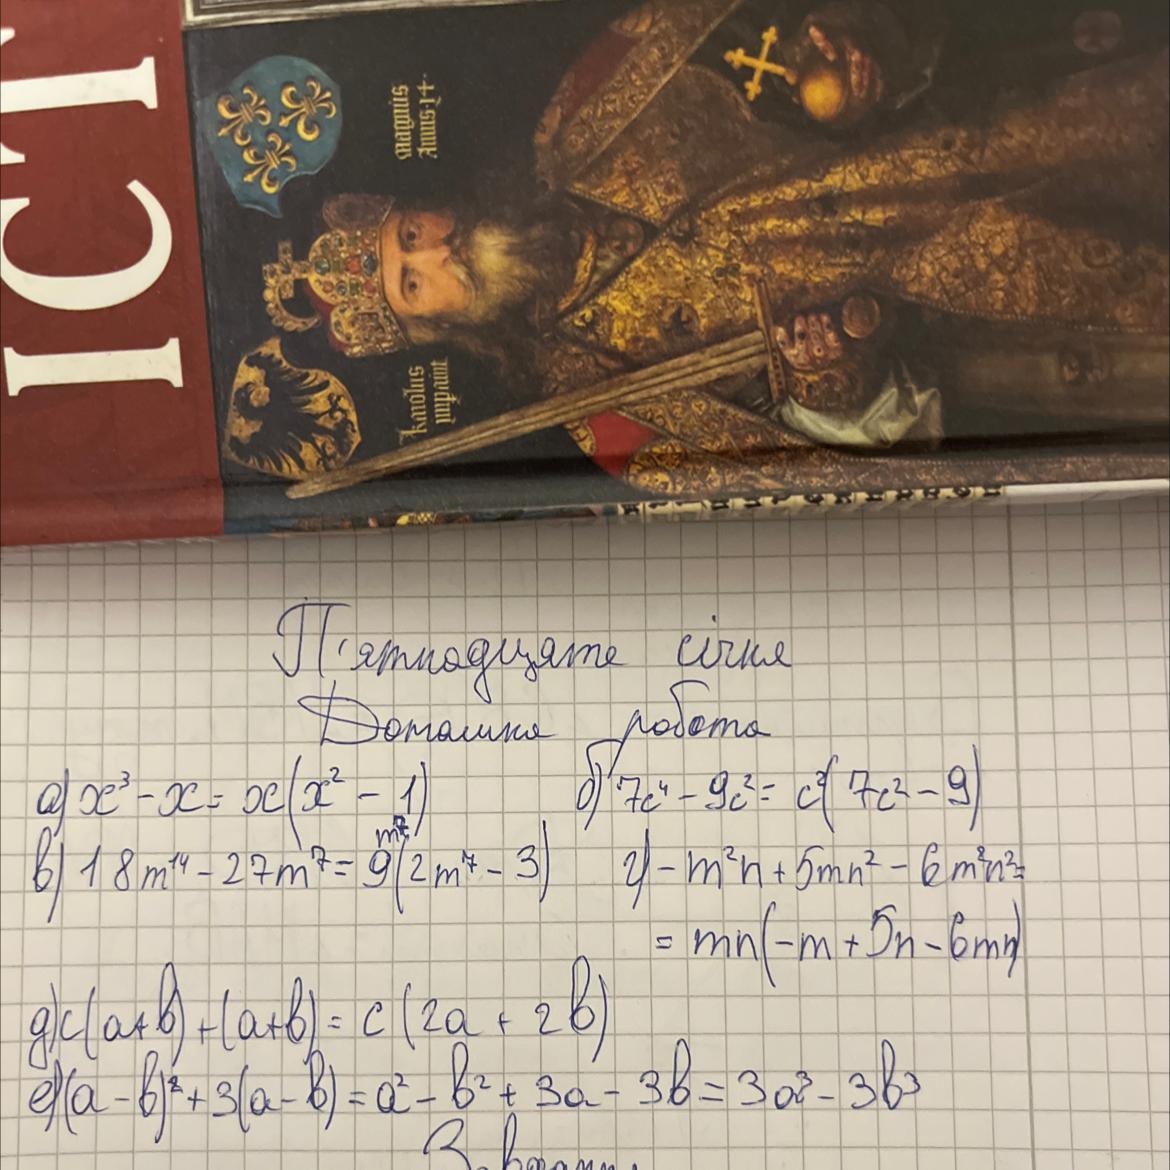 ІСТ
magnus
Annis·14·
Karolus
imp̄avit
П'ятнадцяте січня
Домашня робота
а) x³ - x = x(x² - 1) б) 7c⁴ - 9c² = c²(7c² - 9)
в) 18m¹⁴ - 27m⁷ = 9m⁷(2m⁷ - 3) г) - m²n + 5mn² - 6m²n² =
= mn(-m + 5n - 6mn)
д) c(a+b) + (a+b) = c(2a + 2b)
е) (a - b)² + 3(a - b) = a² - b² + 3a - 3b = 3a³ - 3b³